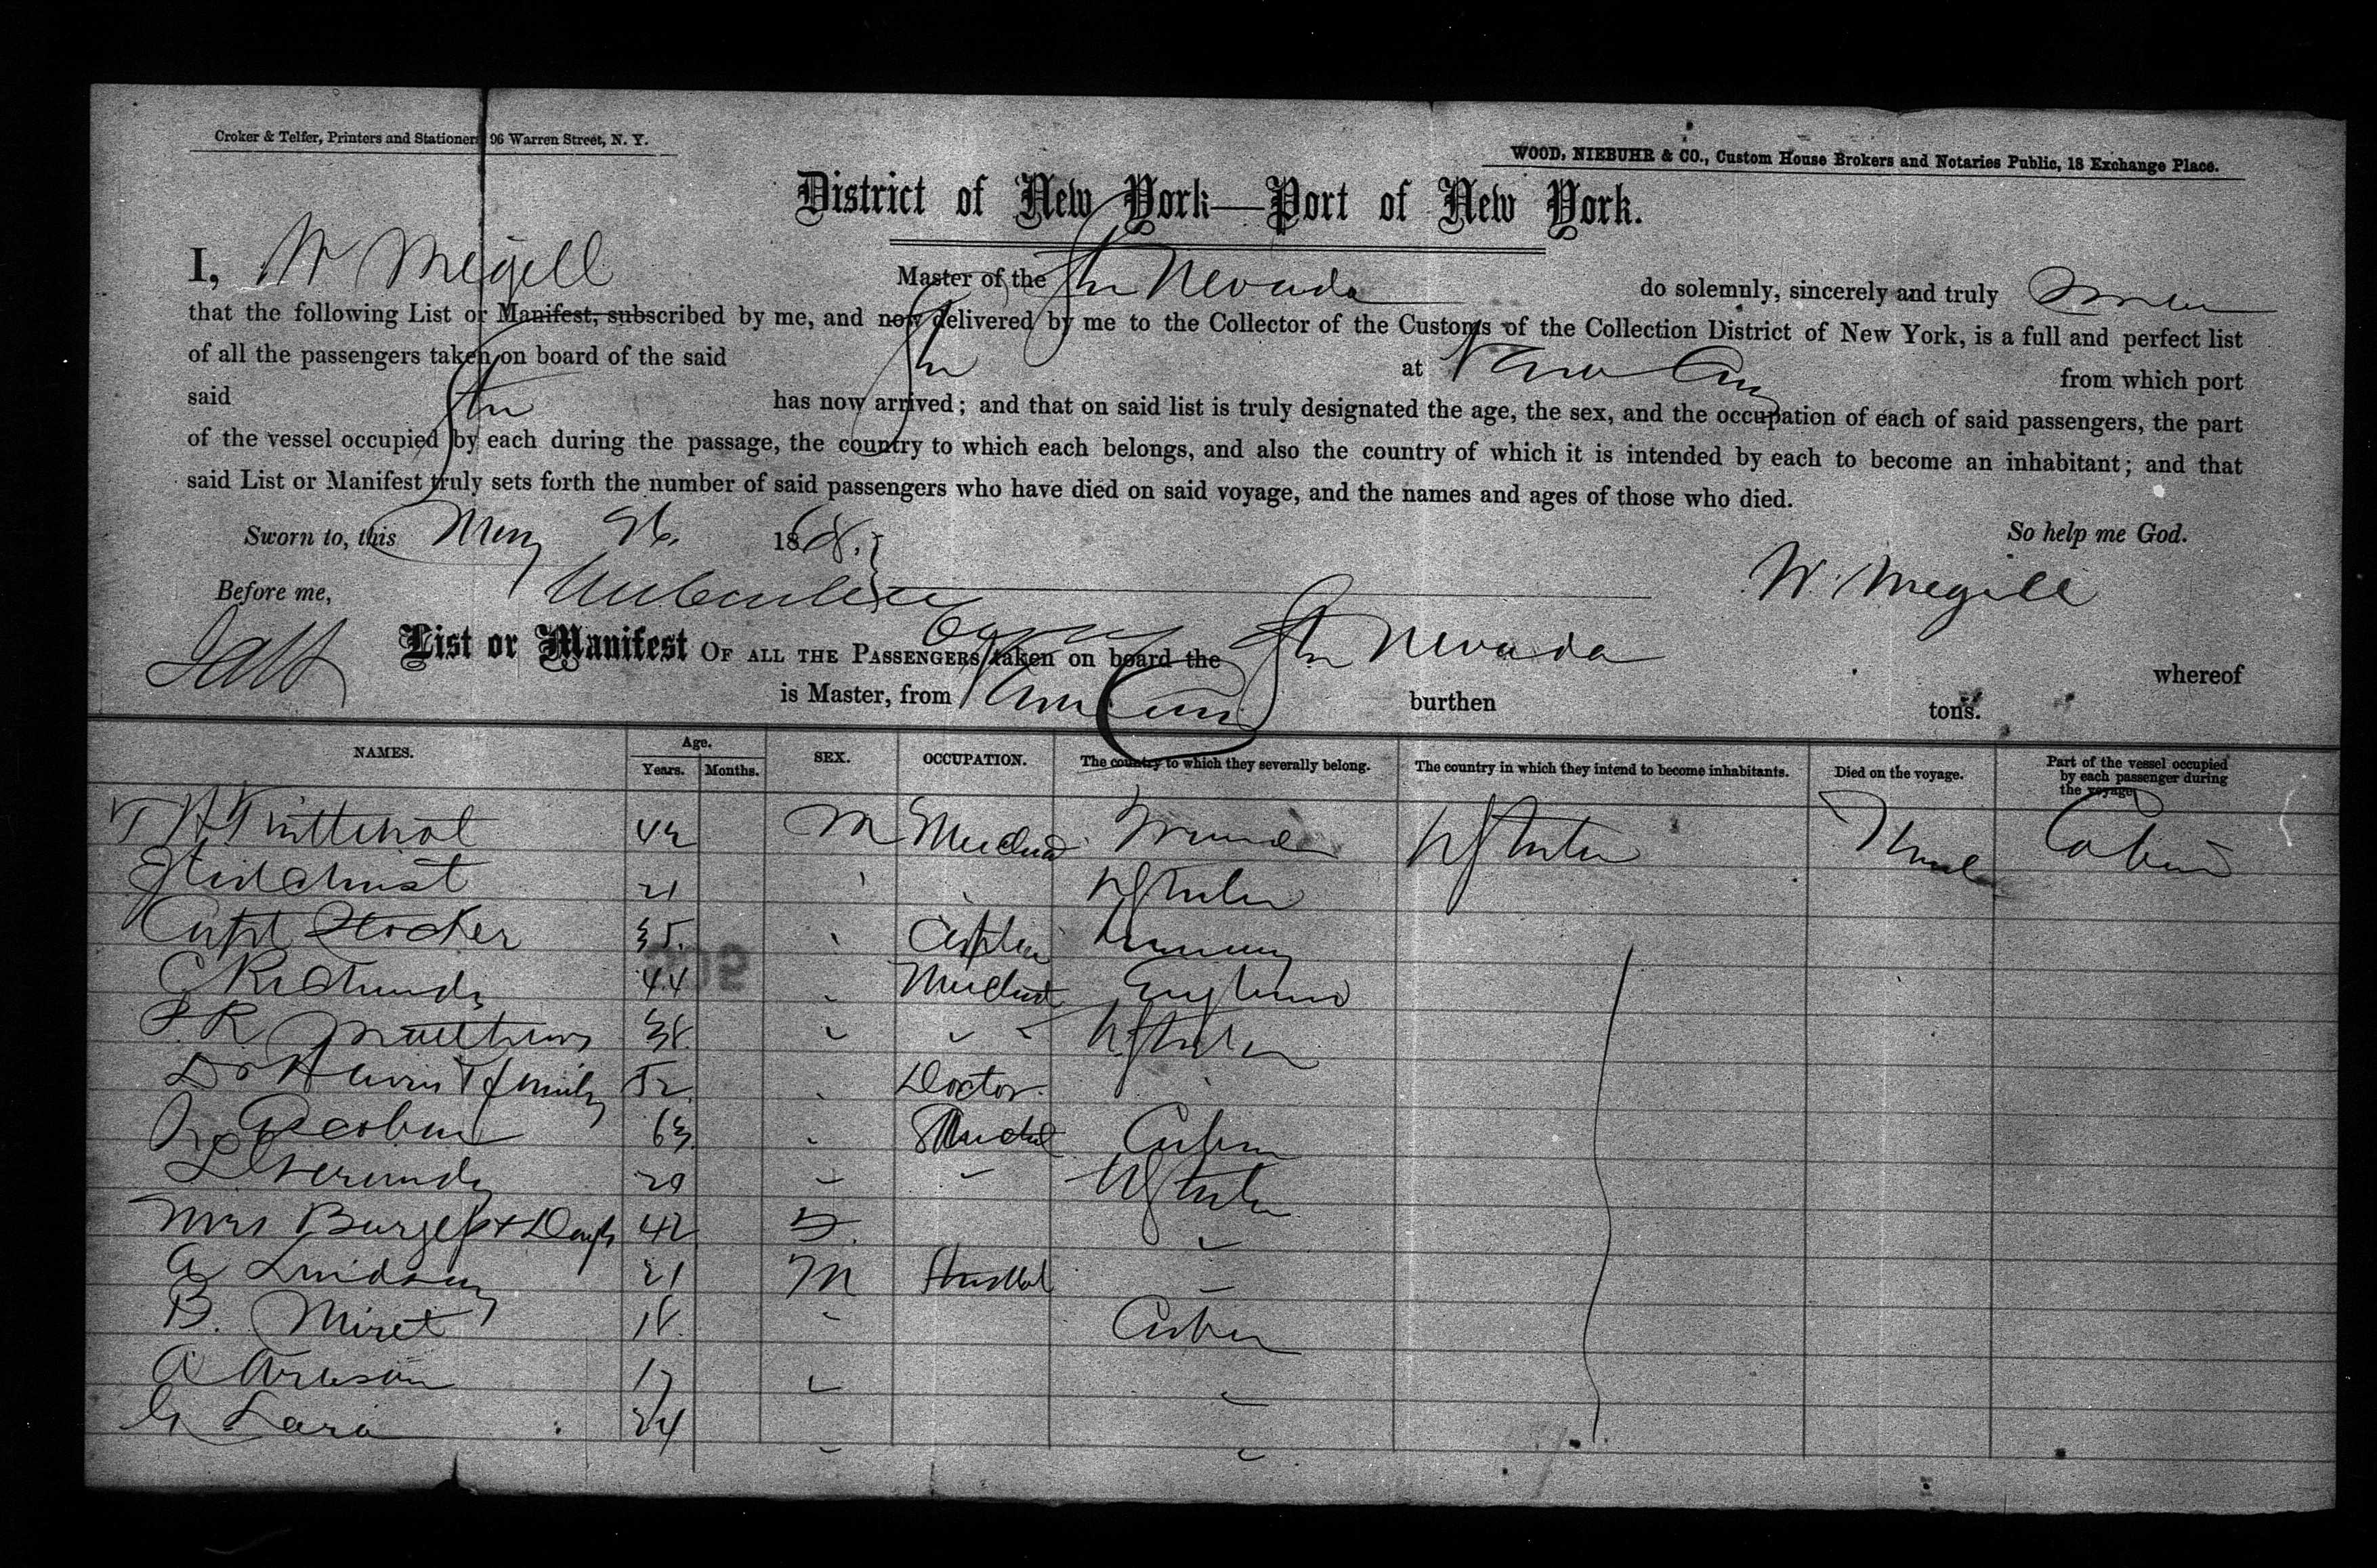 Croker & Telfer, Printers and Stationers, 96 Warren Street, N. Y.
WOOD, NIEBUHR & CO., Custom House Brokers and Notaries Public, 18 Exchange Place.
District of New York—Port of New York.
I, W Megill Master of the Str Nevada do solemnly, sincerely and truly
that the following List or Manifest, subscribed by me, and now delivered by me to the Collector of the Customs of the Collection District of New York, is a full and perfect list
of all the passengers taken on board of the said Str at Vera Cruz from which port
said Str has now arrived; and that on said list is truly designated the age, the sex, and the occupation of each of said passengers, the part
of the vessel occupied by each during the passage, the country to which each belongs, and also the country of which it is intended by each to become an inhabitant; and that
said List or Manifest truly sets forth the number of said passengers who have died on said voyage, and the names and ages of those who died.
Sworn to, this May 26. 1868. So help me God.
Before me, W. Megill
List or Manifest OF ALL THE PASSENGERS taken on board the Str Nevada whereof
is Master, from Vera Cruz burthen tons.
NAMES. Age. Years. Months. SEX. OCCUPATION. The country to which they severally belong. The country in which they intend to become inhabitants. Died on the voyage. Part of the vessel occupied by each passenger during the voyage.
42 M U States None Cabin
21 U States
Capt Stocker 35. Captain Germany
44 England
Matthews 38. U States
Dr Harris & family 52. Doctor.
63. Cuba
29 U States
Mrs Burgess & Daugh 42 F.
A Lindsay 21 M
B. Miret 18. Cuba
A 17
G Lara 24